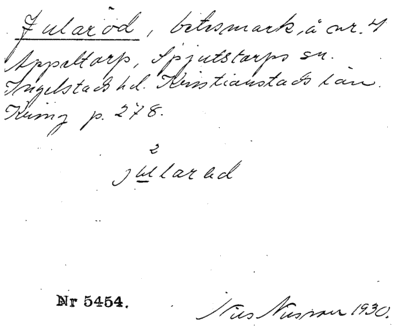 Jularöd, betesmark, å nr. 4
Appaltorp, Spjutstorps sn.
Ingelstads hd. Kristianstads län.
Kring p. 278.
2
jularöd
Nr 5454.
Nils Nilsson 1930.